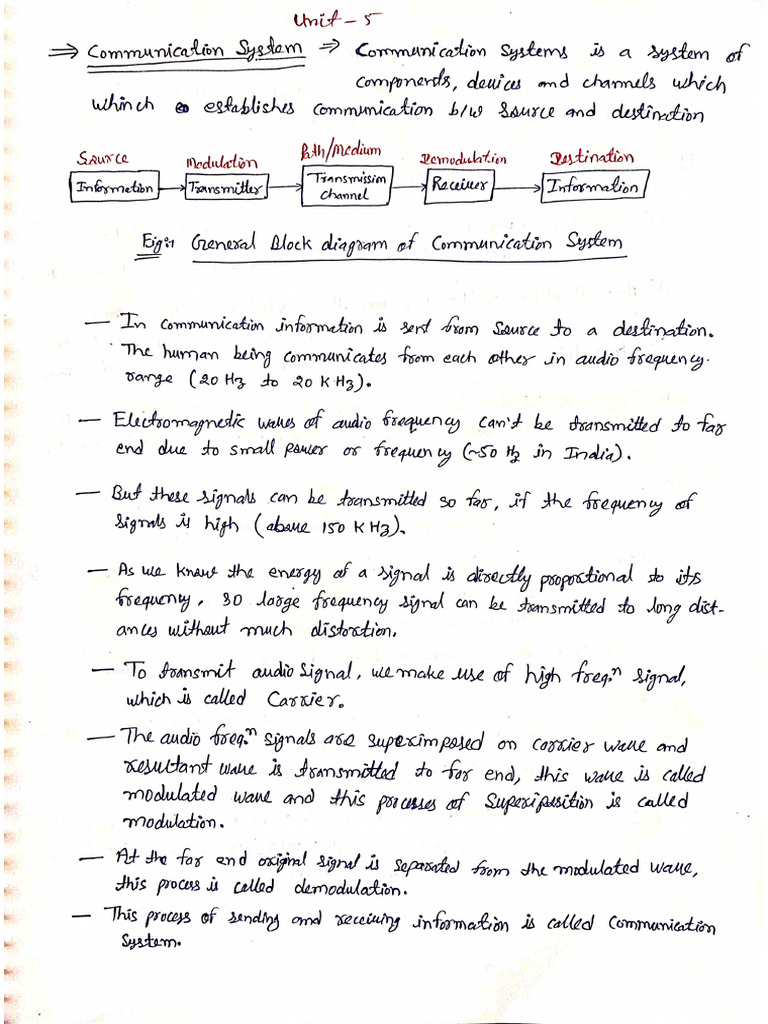 Unit - 5
⇒ Communication System ⇒ Communication Systems is a system of
components, devices and channels which
whinch establishes communication b/w source and destination
Source Modulation Path/Medium Demodulation Destination
Information → Transmitter → Transmission Channel → Receiver → Information
Fig:1 General Block diagram of Communication System
— In communication information is sent from source to a destination.
The human being communicates from each other in audio frequency.
range (20 Hz to 20 K Hz).
— Electromagnetic waves of audio frequency can't be transmitted to far
end due to small power or frequency (~50 Hz in India).
— But these signals can be transmitted so far, if the frequency of
signals is high (above 150 K Hz).
— As we know the energy of a signal is directly proportional to its
frequency, so large frequency signal can be transmitted to long dist-
ances without much distortion.
— To transmit audio signal, we make use of high freq.n signal,
which is called Carrier.
— The audio freq.n signals are superimposed on carrier wave and
resultant wave is transmitted to far end, this wave is called
modulated wave and this processes of Superiposition is called
modulation.
— At the far end original signal is separated from the modulated wave,
this process is called demodulation.
— This process of sending and receiving information is called Communication
System.